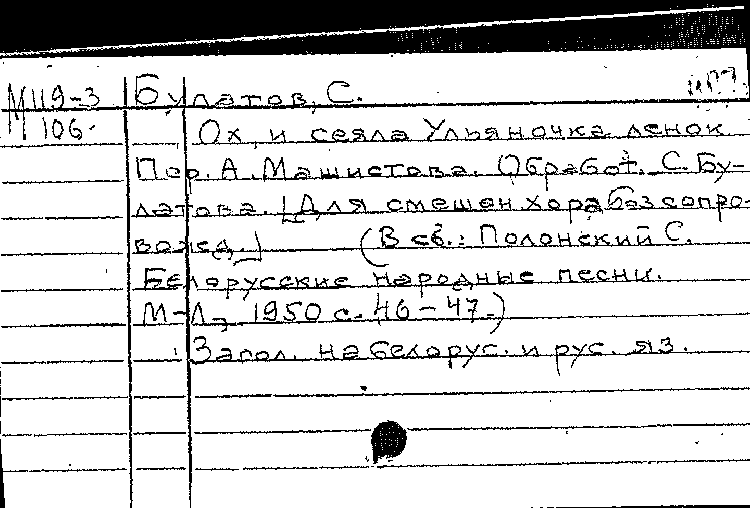 М119-3 Булатов, С.
М106.
Ох, и сеяла Ульяночка ленок
Пер. А. Машистова. Обработ. С. Бу-
латова. [Для смешен. хора без сопро-
вожд.] (В сб.: Полонский С.
Белорусские народные песни.
М-Л., 1950 с. 46-47.)
Загол. на белорус. и рус. яз.